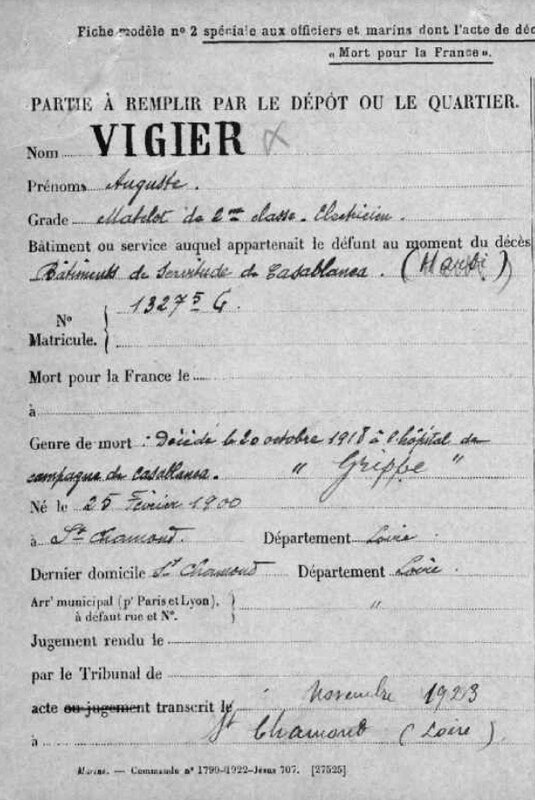 Fiche modèle n° 2 spéciale aux officiers et marins dont l'acte de déc
« Mort pour la France ».
PARTIE À REMPLIR PAR LE DÉPÔT OU LE QUARTIER.
Nom VIGIER
Prénoms Auguste.
Grade Matelot de 2me classe. Electricien.
Bâtiment ou service auquel appartenait le défunt au moment du décès
Bâtiments de Servitude de Casablanca. (Maroc)
13275 G
N°
Matricule.
Mort pour la France le
à
Genre de mort : Décédé le 20 octobre 1918 à l'hôpital de
campagne de Casablanca. " Grippe "
Né le 25 Février 1900
à St Chamond. Département Loire.
Dernier domicile St Chamond Département Loire.
Arrt municipal (pr Paris et Lyon), "
à défaut rue et N°.
Jugement rendu le
par le Tribunal de
acte ou jugement transcrit le Novembre 1923
à St Chamond (Loire).
Marine. — Commande n° 1790-1922-Jésus 707. [27525]